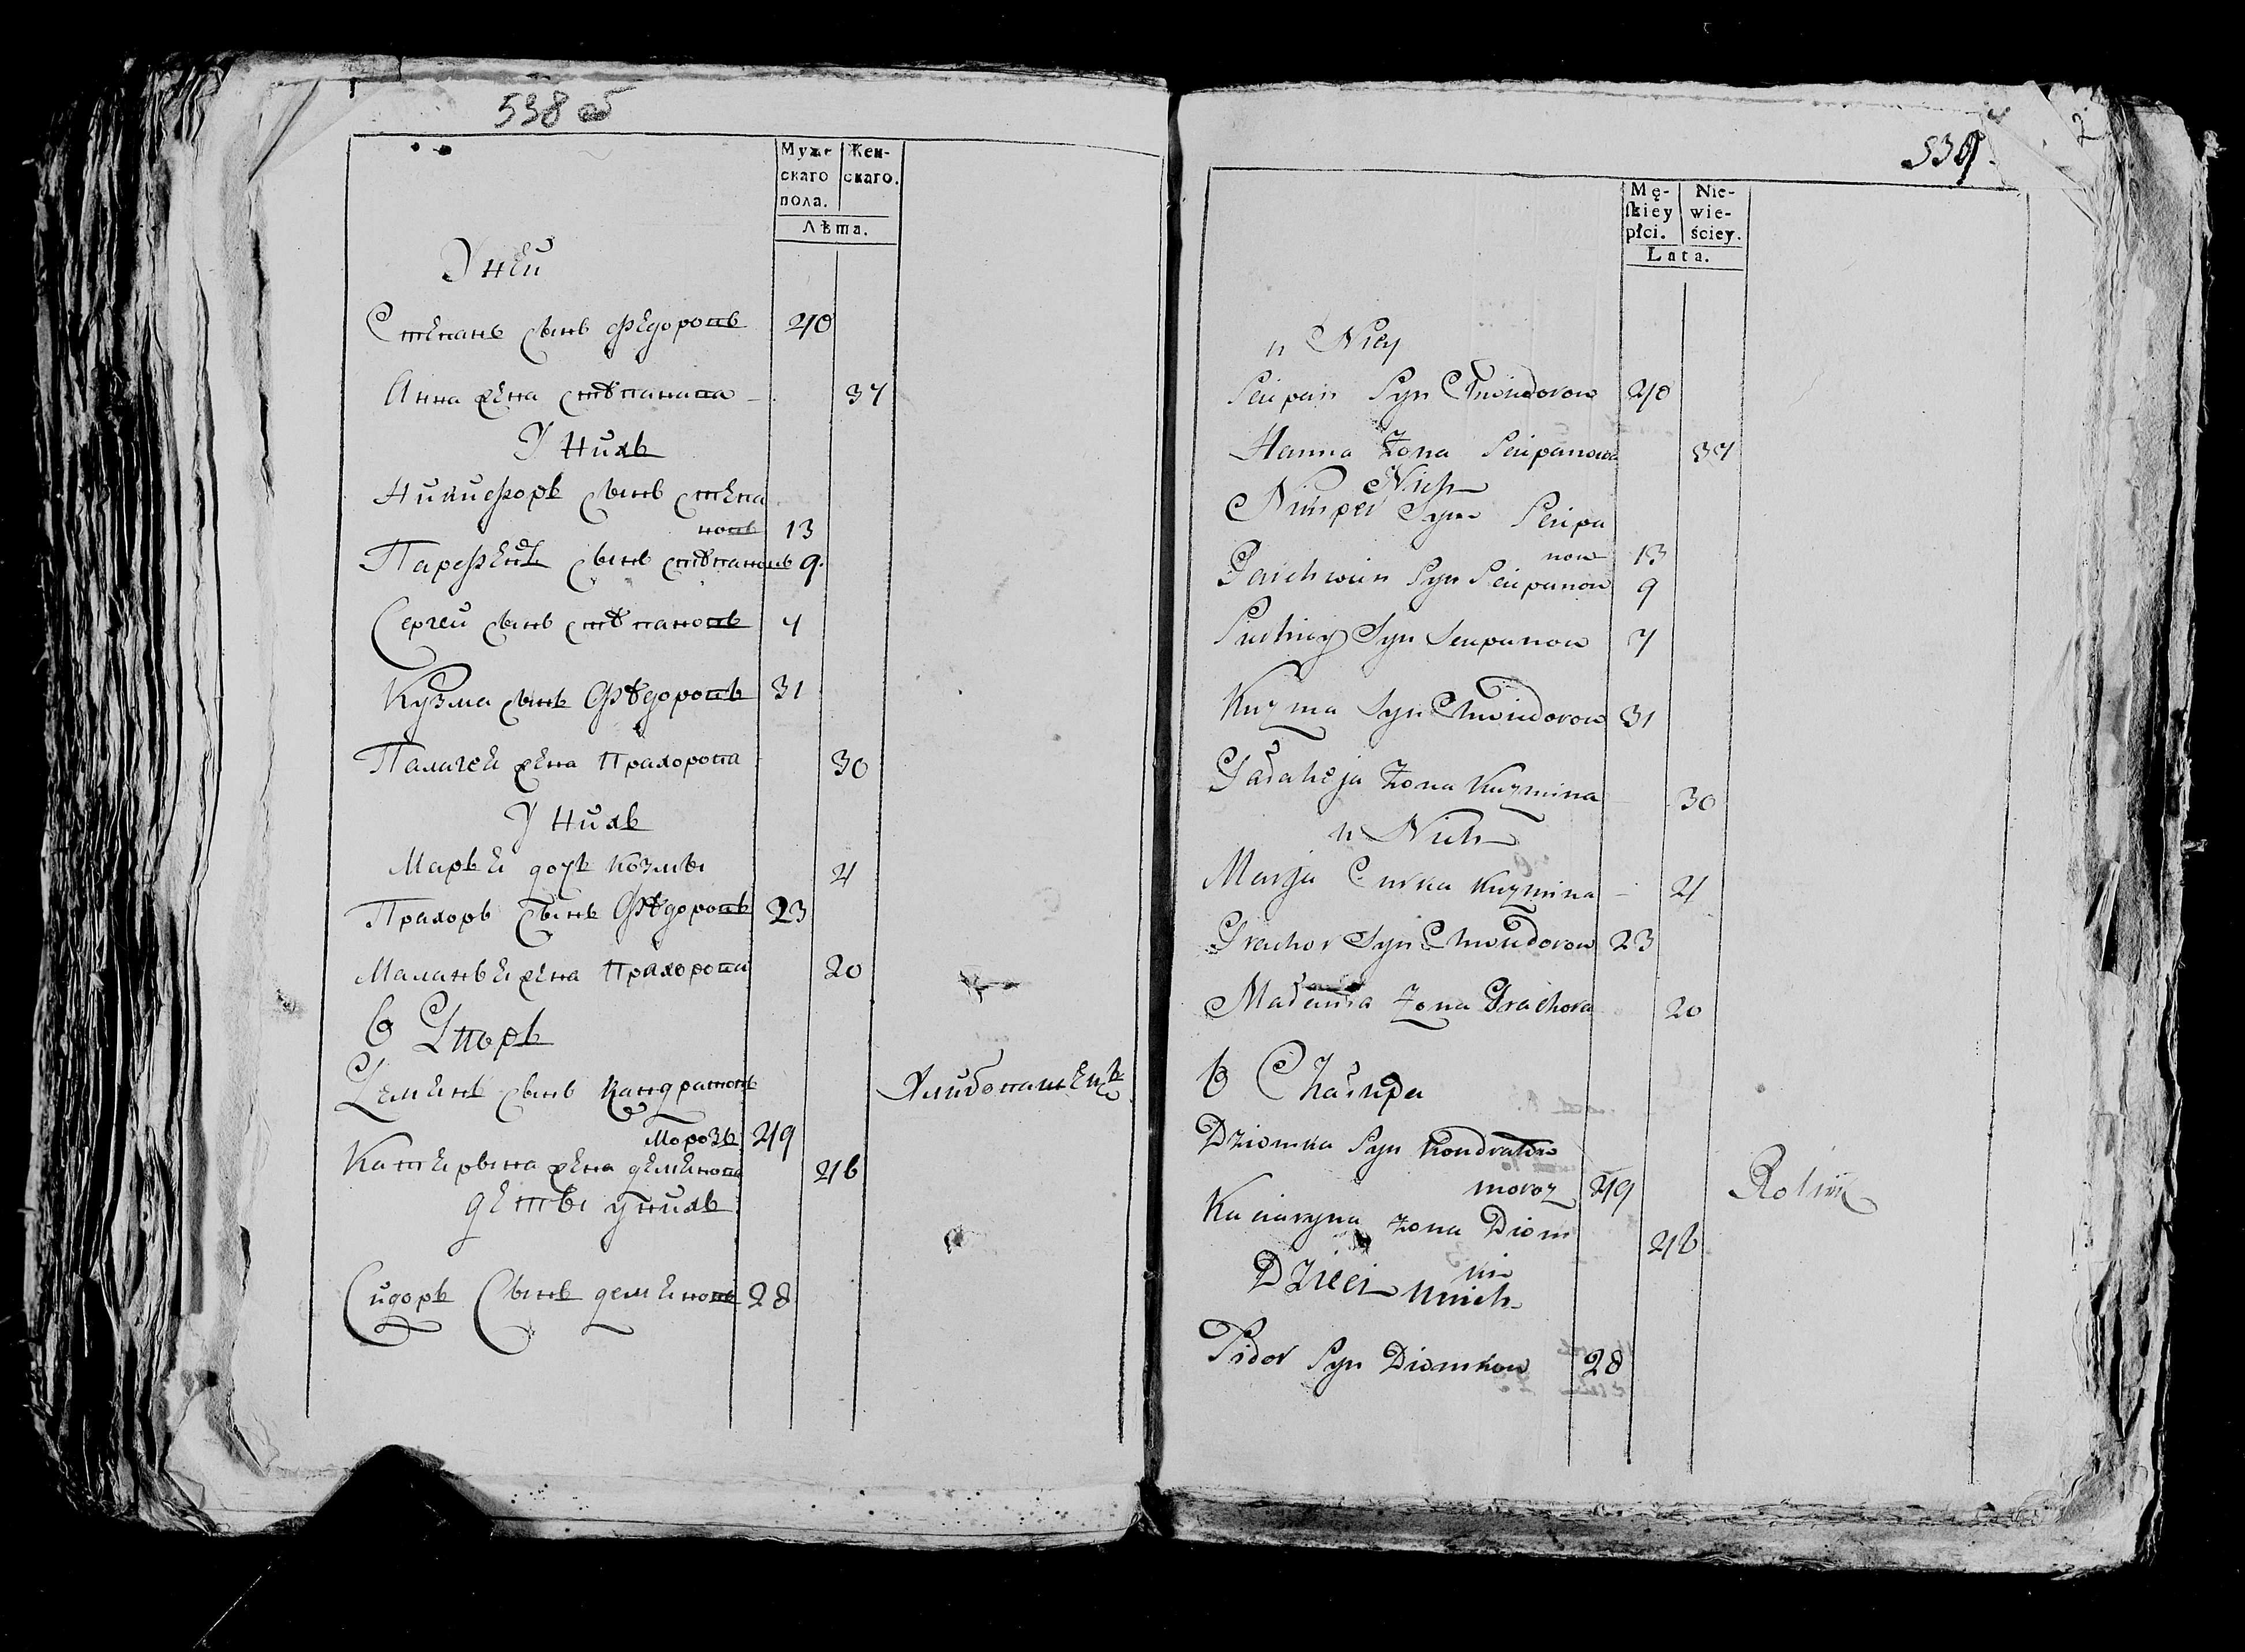 538 об
Муже
скаго
пола.
Жен-
скаго.
Лѣта.
У ней
Степанъ сынъ Федоровъ 40
Анна жена Стѣпанава 37
У нихъ
Никифоръ сынъ Степа
новъ 13
Парфенъ сынъ Стѣпановъ 9
Сергей сынъ Стѣпановъ 4
Кузма сынъ Фѣдоровъ 31
Палагея жена Прахорова 30
У нихъ
Марья дочь Козмы 4
Прахоръ сынъ Фѣдоровъ 23
Маланья жена Прахорова 20
6 Дворъ
Деменъ сынъ Кандратовъ
Морозъ 49
Катерына жена Деменова 46
дети у нихъ
Сидоръ Сынъ Деменовъ 28
539
2
Mę-
skiey
płci.
Nie-
wie-
ściey.
Lata.
u Niey
Sciepan Syn Chwiedorow 40
Hanna Żona Sciepanowa 37
Nich
Syn Sciepa
now 13
Syn Sciepanow 9
Syn Sciepanow 4
Kuzma Syn Chwiedorow 31
Pałaheja Żona Kuzmina 30
u Nich
Marja Curka Kuzmina 4
Prachor Syn Chwiedorow 23
Małania Żona Prachora 20
6 Chałupa
Dziomka Syn Kondratow
Moroz 49
Kaciaryna żona Diom
46
Dzieci unich
Sidor Syn Diomkow 28